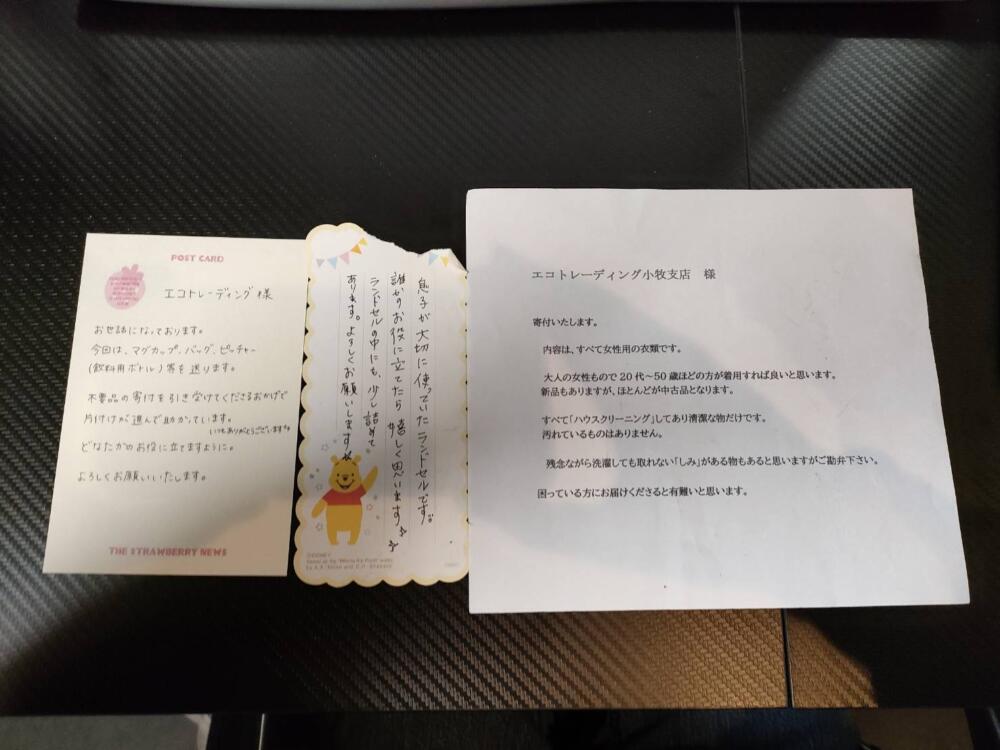 POST CARD
エコトレーディング様
お世話になっております。
今回は、マグカップ、バッグ、ピッチャー
(飲料用ボトル)等を送ります。
不要品の寄付を引き受けてくださるおかげで
片付けが進んで助かっています。
いつもありがとうございます
どなたかのお役に立てますように。
よろしくお願いいたします。
THE STRAWBERRY NEWS
息子が大切に使っていたランドセルです。
誰かのお役に立てたら嬉しく思います
ランドセルの中にも、少し詰めて
あります。よろしくお願いします
©DISNEY
Based on the "Winnie the Pooh" works
by A.A. Milne and E.H. Shepard
エコトレーディング小牧支店 様
寄付いたします。
内容は、すべて女性用の衣類です。
大人の女性もので20代～50歳ほどの方が着用すれば良いと思います。
新品もありますが、ほとんどが中古品となります。
すべて「ハウスクリーニング」してあり清潔な物だけです。
汚れているものはありません。
残念ながら洗濯しても取れない「しみ」がある物もあると思いますがご勘弁下さい。
困っている方にお届けくださると有難いと思います。